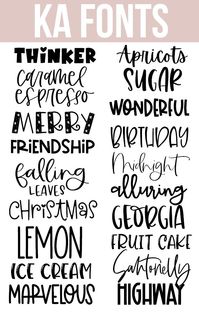 KA FONTS
THINKER
caramel
espresso
MERRY
FRIENDSHIP
falling
LEAVES
CHRISTMAS
LEMON
ICE CREAM
MARVELOUS
Apricots
SUGAR
WONDERFUL
BIRTHDAY
Midnight
alluring
GEORGIA
FRUIT CAKE
Santorelly
HIGHWAY